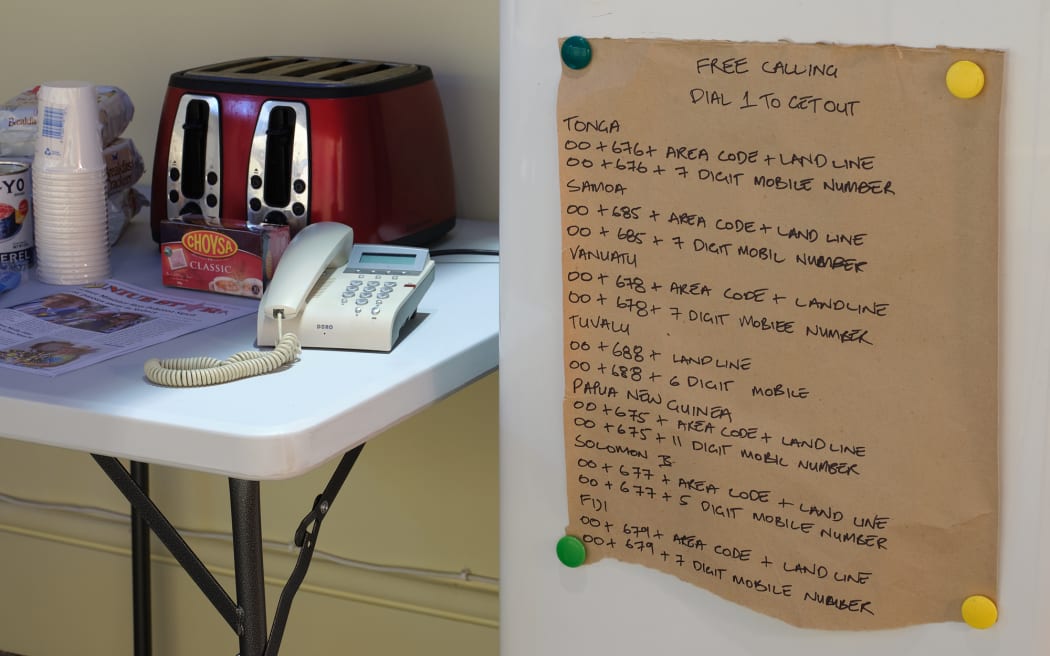 CHOYSA
CLASSIC
DORO
FREE CALLING
DIAL 1 TO GET OUT
TONGA
00 + 676 + AREA CODE + LAND LINE
00 + 676 + 7 DIGIT MOBILE NUMBER
SAMOA
00 + 685 + AREA CODE + LAND LINE
00 + 685 + 7 DIGIT MOBIL NUMBER
VANUATU
00 + 678 + AREA CODE + LANDLINE
00 + 678 + 7 DIGIT MOBIEE NUMBER
TUVALU
00 + 688 + LAND LINE
00 + 688 + 6 DIGIT MOBILE
PAPUA NEW GUINEA
00 + 675 + AREA CODE + LAND LINE
00 + 675 + 11 DIGIT MOBIL NUMBER
SOLOMON IS
00 + 677 + AREA CODE + LAND LINE
00 + 677 + 5 DIGIT MOBILE NUMBER
FIJI
00 + 679 + AREA CODE + LAND LINE
00 + 679 + 7 DIGIT MOBILE NUMBER